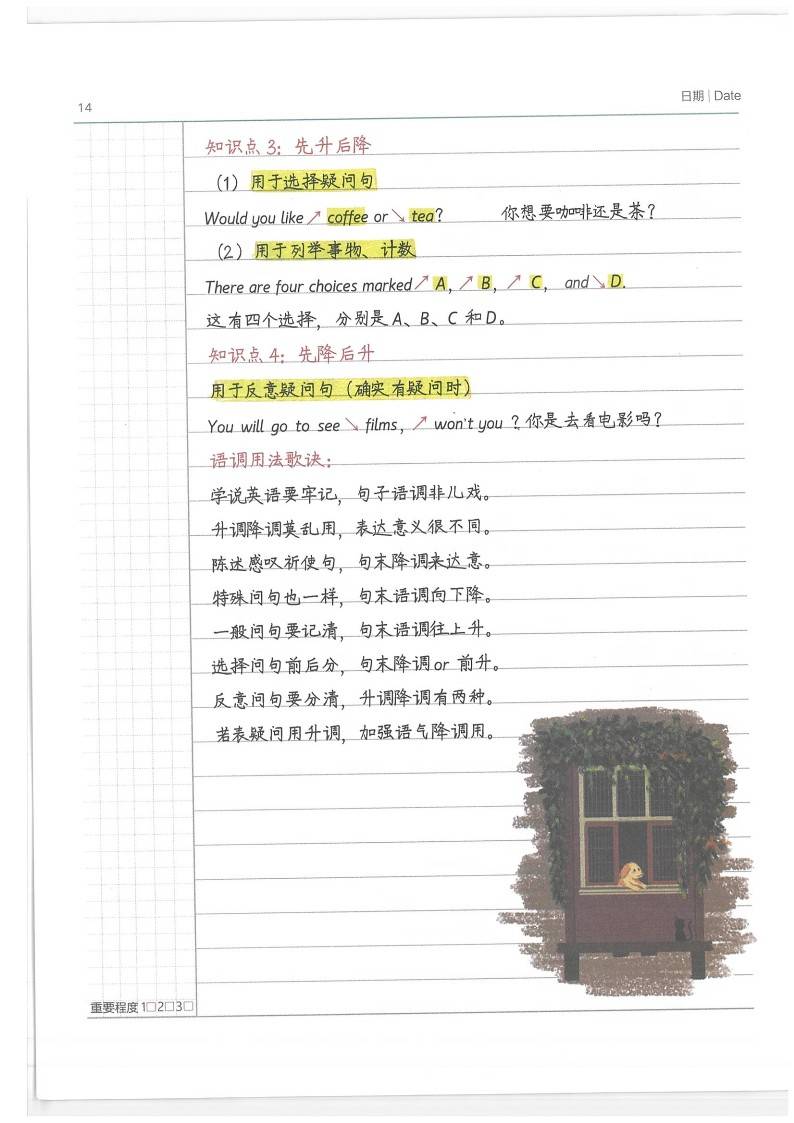 14
日期 | Date
知识点 3：先升后降
（1）用于选择疑问句
Would you like ↗ coffee or ↘ tea? 你想要咖啡还是茶？
（2）用于列举事物、计数
There are four choices marked ↗ A, ↗ B, ↗ C, and ↘ D.
这有四个选择，分别是 A、B、C 和 D。
知识点 4：先降后升
用于反意疑问句（确实有疑问时）
You will go to see ↘ films, ↗ won't you ? 你是去看电影吗？
语调用法歌诀：
学说英语要牢记，句子语调非儿戏。
升调降调莫乱用，表达意义很不同。
陈述感叹祈使句，句末降调来达意。
特殊问句也一样，句末语调向下降。
一般问句要记清，句末语调往上升。
选择问句前后分，句末降调 or 前升。
反意问句要分清，升调降调有两种。
若表疑问用升调，加强语气降调用。
重要程度 1□2□3□